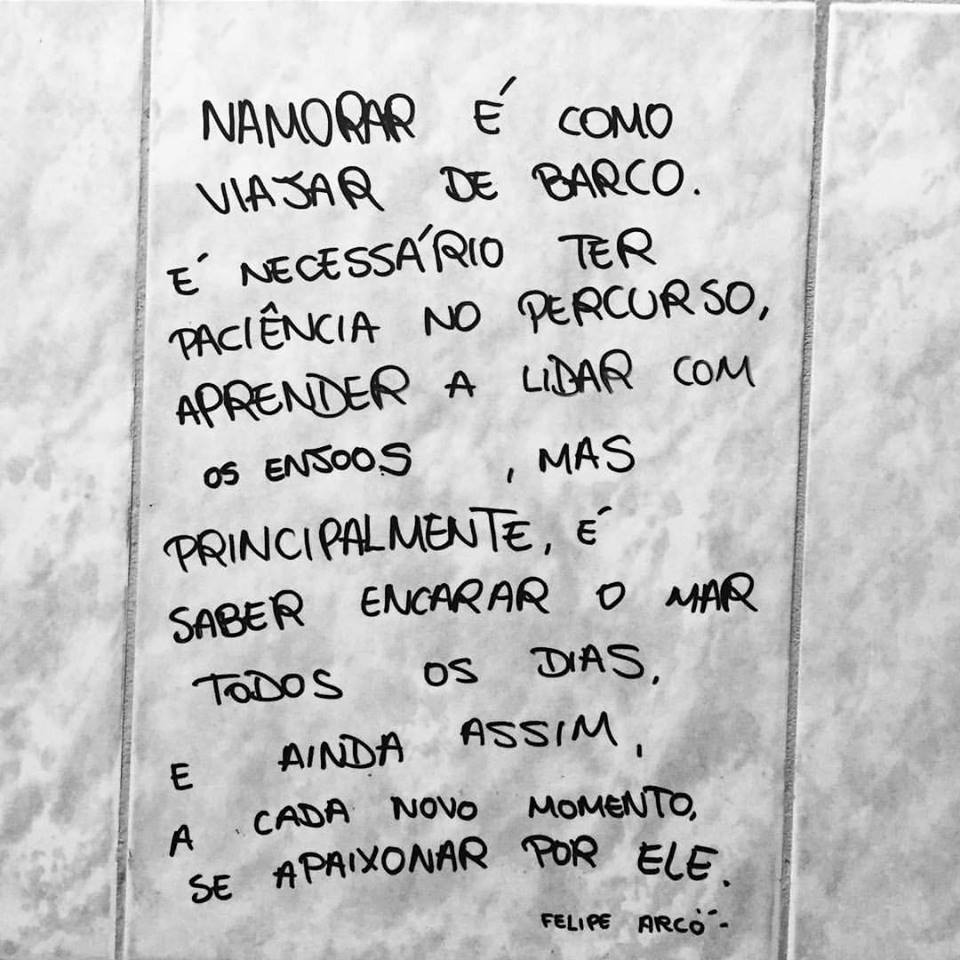 NAMORAR É COMO
VIAJAR DE BARCO.
É NECESSÁRIO TER
PACIÊNCIA NO PERCURSO,
APRENDER A LIDAR COM
OS ENJOOS , MAS
PRINCIPALMENTE, É
SABER ENCARAR O MAR
TODOS OS DIAS,
E AINDA ASSIM,
A CADA NOVO MOMENTO,
SE APAIXONAR POR ELE.
FELIPE ARCO